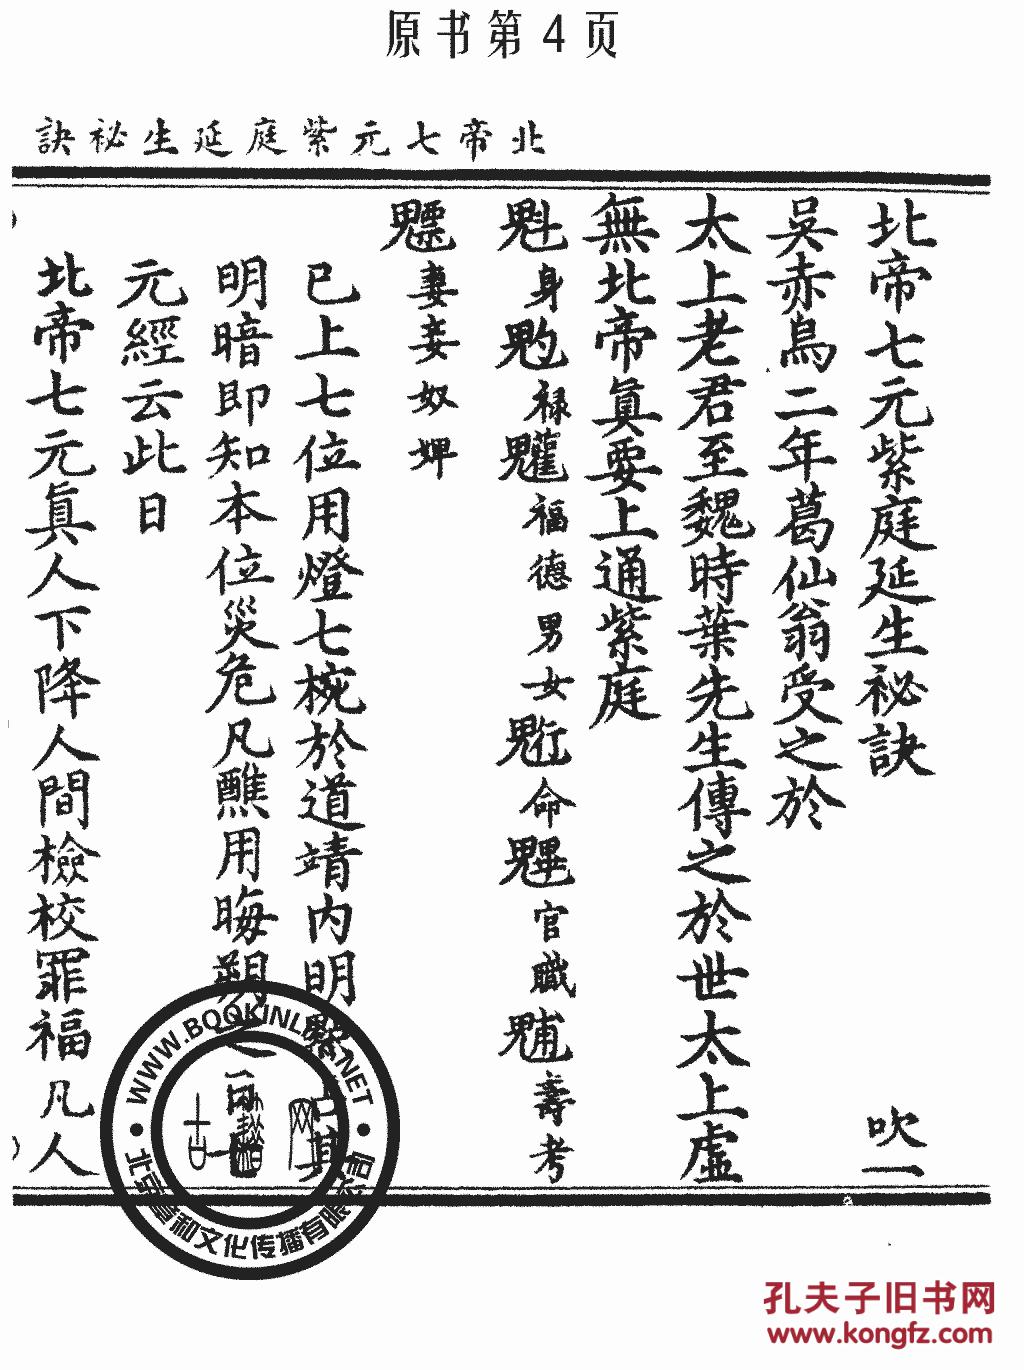 原书第4页
北帝七元紫庭延生祕訣
北帝七元紫庭延生祕訣 吹一
吳赤烏二年葛仙翁受之於
太上老君至魏時葉先生傳之於世太上虛
無北帝眞要上通紫庭
魁身魀禄魓福德男女䰢命魓官職魒壽考
魒妻妾奴婢
已上七位用燈七椀於道靖內明點占其
明暗即知本位災危凡醮用晦朔之
元經云此日
北帝七元眞人下降人人間檢校罪福凡人
WWW.BOOKINLIFE.NET
文化传播有限公司
孔夫子旧书网
www.kongfz.com